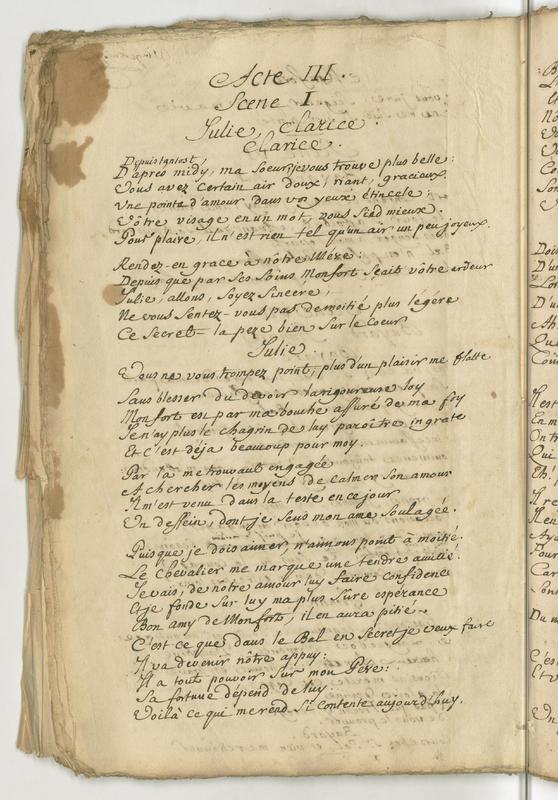 Acte III.
Scene I
Julie, Clarice.
Clarice.
Depuis tantost
D'apres midy, ma Soeur, je vous trouve plus belle:
Vous avez certain air doux, riant, gracieux.
Une pointe d'amour dans vos yeux étincele;
Vôtre visage en un mot, vous Sied mieux.
Pour plaire, il n'est rien tel qu'un air un peu joyeux.
Rendez-en grace à nôtre Mére:
Depuis que par Ses Soins Monfort Sçait vôtre ardeur
Julie, allons, Soyez Sincére,
Ne vous Sentez-vous pas de moitié plus légére
Ce Secret la peze bien Sur le Coeur
Julie
Vous ne vous trompez point, plus d'un plaisir me flatte
Sans blesser du devoir la rigoureuse loy
Monfort est par ma bouche assuré de ma foy
Je n'ay plus le chagrin de luy paroître ingrate
Et c'est déja beaucoup pour moy.
Par là me trouvant engagée
A chercher les moyens de calmer Son amour
Il m'est venu dans la teste en ce jour
Un dessein, dont je Sens mon ame Soulagée.
Puisque je dois aimer, n'aimons point à moitié.
Le Chevalier me marque une tendre amitié.
Je vais, de nôtre amour luy faire confidence
Et je fonde Sur luy ma plus Sure esperance
Bon amy de Monfort, il en aura pitié.
C'est ce que dans le Bal en Secret je veux faire
Il va devenir nôtre appuy:
Il a tout pouvoir Sur mon Pére:
Sa fortune dépend de luy
Voilà ce qui me rend Si contente aujourd'huy.